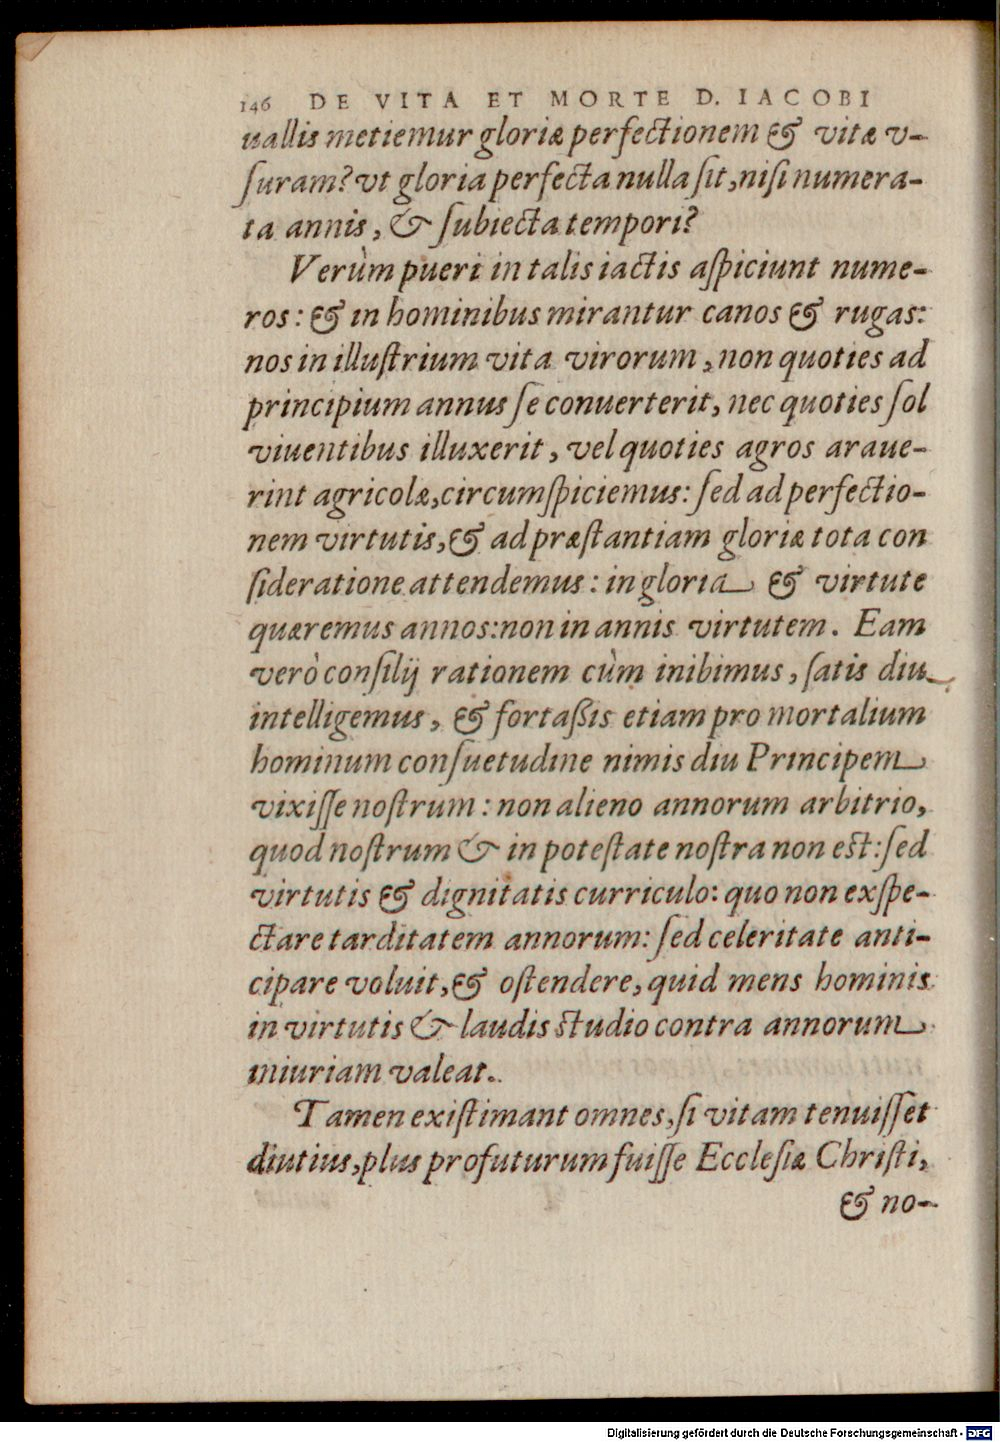 146 DE VITA ET MORTE D. IACOBI
uallis metiemur gloriæ perfectionem & vitæ v-
ſuram? vt gloria perfecta nulla ſit, niſi numera-
ta annis, & ſubiecta tempori?
Verùm pueri in talis iactis aſpiciunt nume-
ros: & in hominibus mirantur canos & rugas:
nos in illuſtrium vita virorum, non quoties ad
principium annus ſe conuerterit, nec quoties ſol
viuentibus illuxerit, vel quoties agros araue-
rint agricolæ, circumſpiciemus: ſed ad perfectio-
nem virtutis, & ad præſtantiam gloriæ tota con
ſideratione attendemus: in gloria & virtute
quæremus annos: non in annis virtutem. Eam
verò conſilij rationem cùm inibimus, ſatis diu
intelligemus, & fortaßis etiam pro mortalium
hominum conſuetudine nimis diu Principem
vixiſſe noſtrum: non alieno annorum arbitrio,
quod noſtrum & in poteſtate noſtra non eſt: ſed
virtutis & dignitatis curriculo: quo non exſpe-
ctare tarditatem annorum: ſed celeritate anti-
cipare voluit, & oſtendere, quid mens hominis
in virtutis & laudis ſtudio contra annorum
iniuriam valeat.
Tamen exiſtimant omnes, ſi vitam tenuiſſet
diutius, plus profuturum fuiſſe Eccleſiæ Chriſti,
& no-
Digitalisierung gefördert durch die Deutsche Forschungsgemeinschaft - DFG